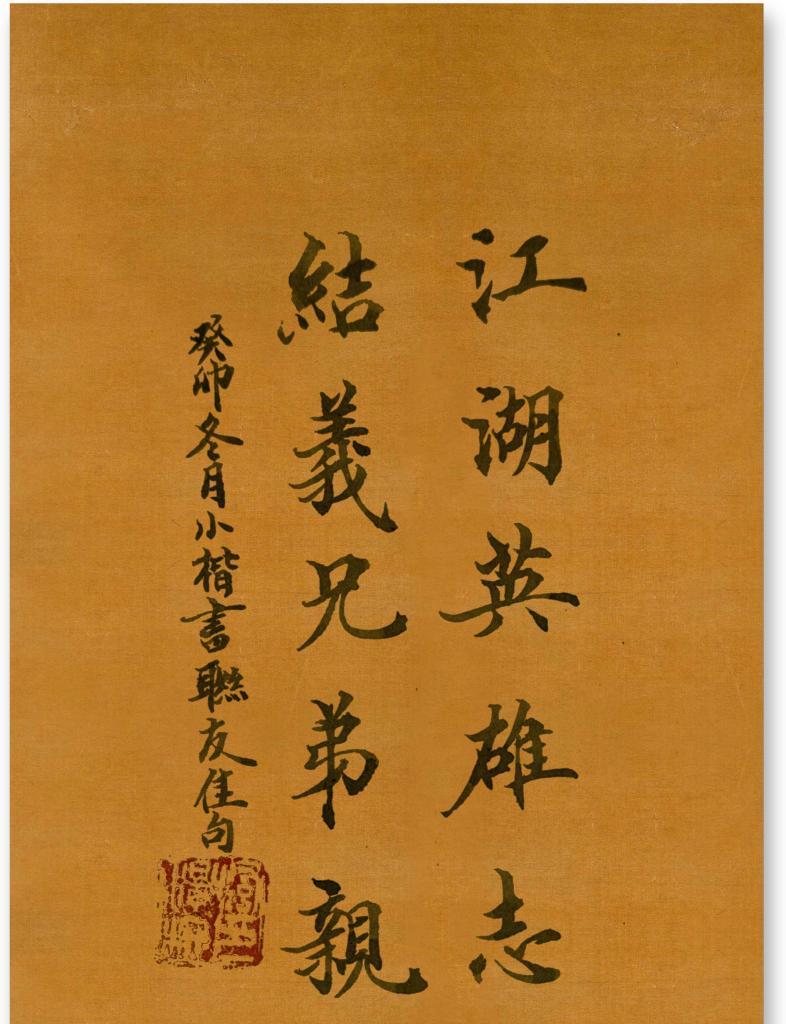 江湖英雄志
結義兄弟親
癸卯冬月小楷書聯友佳句